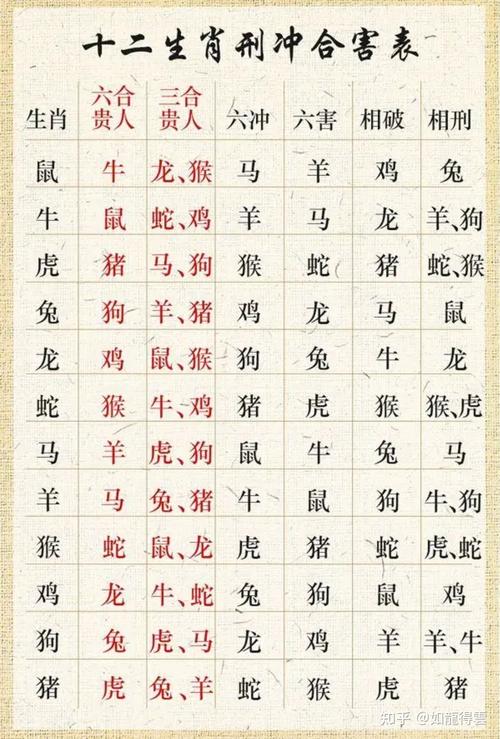 十二生肖刑冲合害表
生肖 六合贵人 三合贵人 六冲 六害 相破 相刑
鼠 牛 龙、猴 马 羊 鸡 兔
牛 鼠 蛇、鸡 羊 马 龙 羊、狗
虎 猪 马、狗 猴 蛇 猪 蛇、猴
兔 狗 羊、猪 鸡 龙 马 鼠
龙 鸡 鼠、猴 狗 兔 牛 龙
蛇 猴 牛、鸡 猪 虎 猴 猴、虎
马 羊 虎、狗 鼠 牛 兔 马
羊 马 兔、猪 牛 鼠 狗 牛、狗
猴 蛇 鼠、龙 虎 猪 蛇 虎、蛇
鸡 龙 牛、蛇 兔 狗 鼠 鸡
狗 兔 虎、马 龙 鸡 羊 羊、牛
猪 虎 兔、羊 蛇 猴 虎 猪
知乎 @如龍得雲